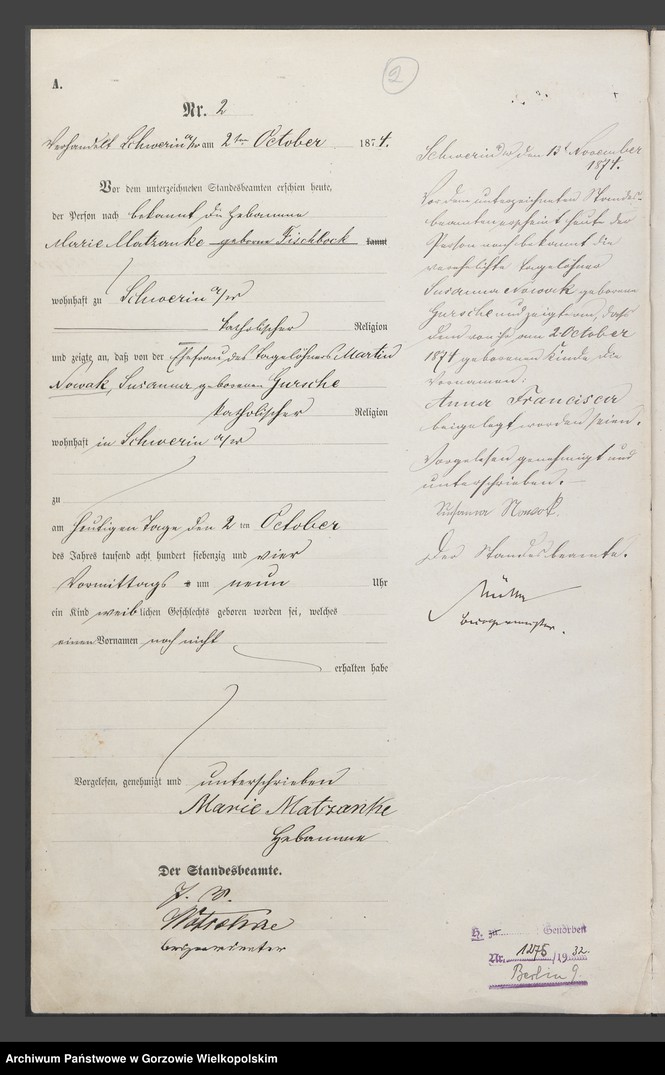 2
A.
Nr. 2
Verhandelt Schwerin a/W am 2ten October 1874.
Vor dem unterzeichneten Standesbeamten erschien heute,
der Person nach bekannt die Hebamme
Marie Matzanke geborne Fischbock kannt
wohnhaft zu Schwerin a/W
katholischer Religion
und zeigte an, daß von der Ehefrau des Tagelöhners Martin
Nowak, Susanna geborenen Gursche
katholischer Religion
wohnhaft in Schwerin a/W
zu
am heutigen Tage den 2 ten October
des Jahres tausend acht hundert siebenzig und vier
Vormittags um neun Uhr
ein Kind weiblichen Geschlechts geboren worden sei, welches
einen Vornamen noch nicht
erhalten habe
Vorgelesen, genehmigt und unterschrieben
Marie Matzanke
Hebamme
Der Standesbeamte.
J. V.
Schwerin a/W, den 13t November
1874.
Vor dem unterzeichneten Standes-
beamten erscheint heute der
Person nach bekannt die
verehelichte Tagelöhner
Susanna Nowak geborene
Gursche und zeigte an, daß
dem von ihr am 2 October
1874 geborenen Kinde die
Vornamen:
Anna Francisca
beigelegt worden seien.
Vorgelesen genehmigt und
unterschrieben.
Susanna Nowak
Der Standesbeamte.
Müller
Bürgermeister.
H. zu Genörbest
Nr. 1275/1932.
Berlin 9.
Archiwum Państwowe w Gorzowie Wielkopolskim